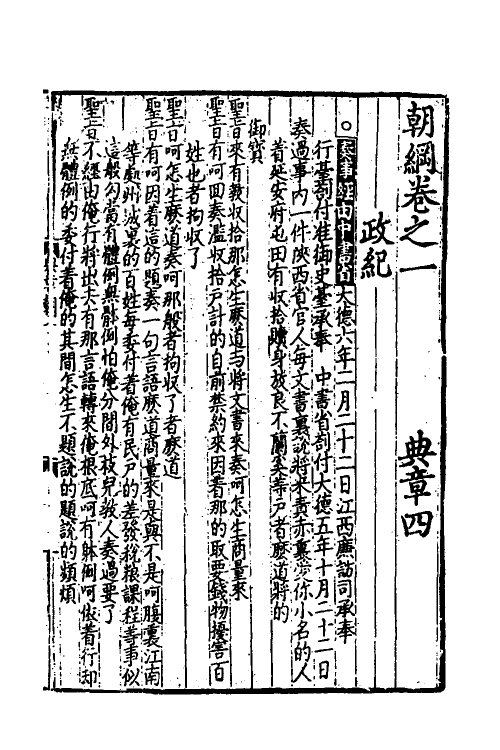 朝綱卷之一　典章四
政紀
○奏事經由中書省大德六年二月二十二日江西廉訪司承奉
行臺劄付准御史臺承奉　中書省劄付大德五年十月二十二日
奏過事内一件陜西省官人每文書裏說將來貴赤裏你小名的人
着延安府屯田有收拾贖身放良不蘭奚等戶者麽道將的
御寶
聖旨來有教收拾那怎生麽道与將文書來奏呵怎生商量來
聖旨有呵回奏濫收拾戶計的自前禁約來因着那的取要錢物擾害百
姓也者拘收了
聖旨呵怎生麽道奏呵那般者拘收了者麽道
聖旨有呵因着這的題奏一句言語麽道商量來是與不是呵腹裏江南
等處州城裏的百姓每委付着俺有民戶的差發稅粮課程等事似
這般勾當有體例無體例怕俺分間外枝兒教人奏過要了
聖旨不經由俺行將出去有那言語轉來俺根底呵有躰例呵依着行却
無體例的委付着俺的其間怎生不題說的題說的頻煩